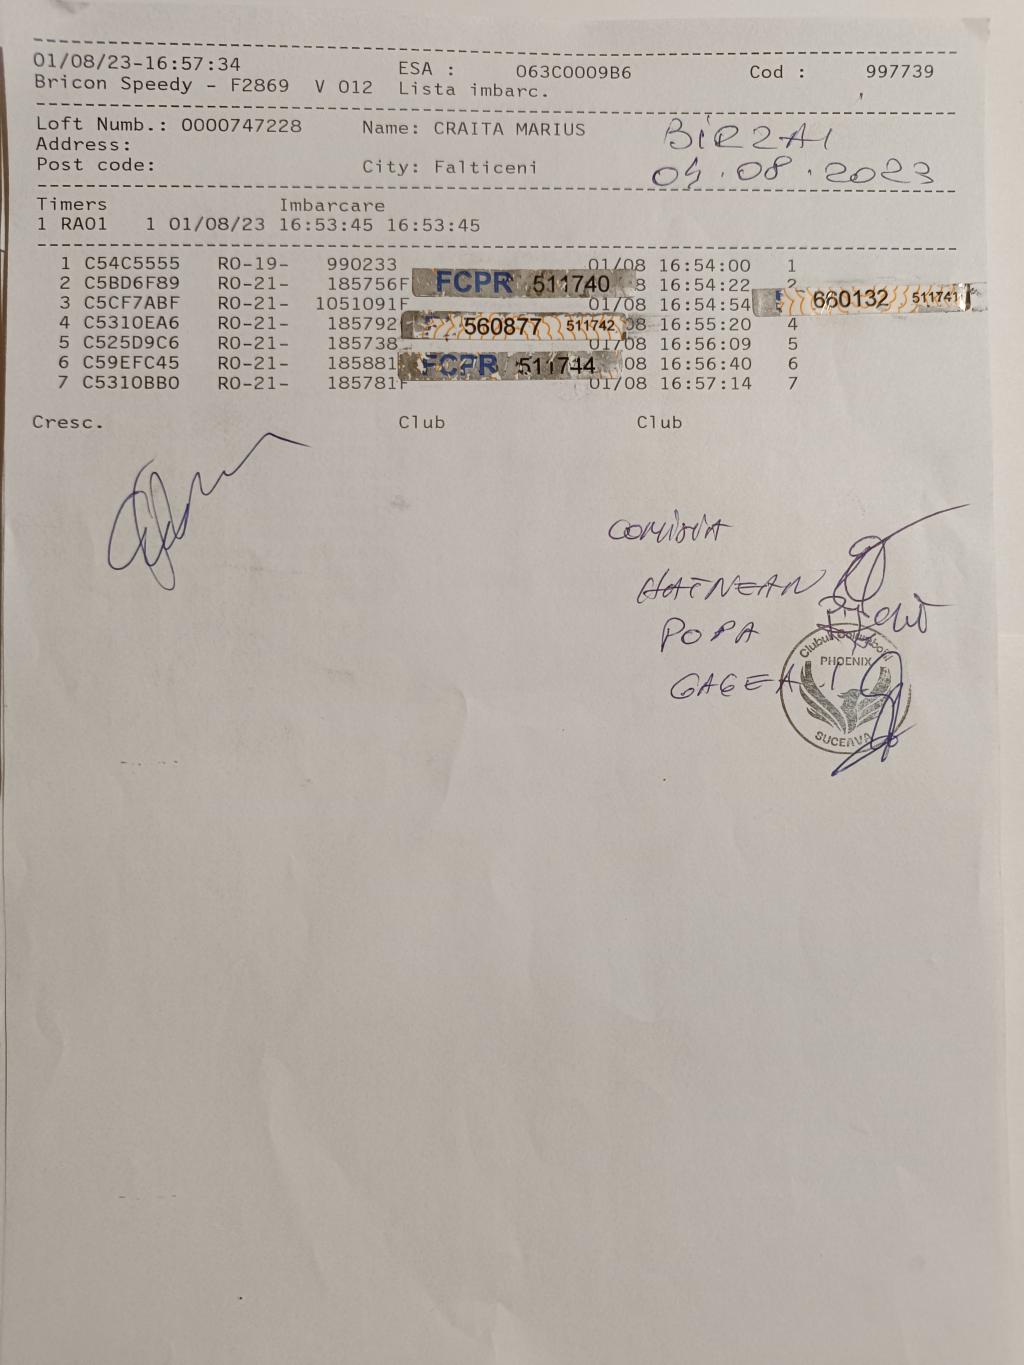 01/08/23-16:57:34 ESA : 063C0009B6 Cod : 997739
Bricon Speedy - F2869 V 012 Lista imbarc.
Loft Numb.: 0000747228 Name: CRAITA MARIUS BIRZAI
Address:
Post code: City: Falticeni 04.08.2023
Timers Imbarcare
1 RA01 1 01/08/23 16:53:45 16:53:45
1 C54C5555 RO-19- 990233 01/08 16:54:00 1
2 C5BD6F89 RO-21- 185756F FCPR 511740 8 16:54:22 2
3 C5CF7ABF RO-21- 1051091F 01/08 16:54:54 660132 511741
4 C5310EA6 RO-21- 185792 560877 511742 08 16:55:20 4
5 C525D9C6 RO-21- 185738 01/08 16:56:09 5
6 C59EFC45 RO-21- 185881 FCPR 511744 08 16:56:40 6
7 C5310BB0 RO-21- 185781F 01/08 16:57:14 7
Cresc. Club Club
COMISIA
HAINEAN
POPA
GAGEA
Clubul Columbofil
PHOENIX
SUCEAVA